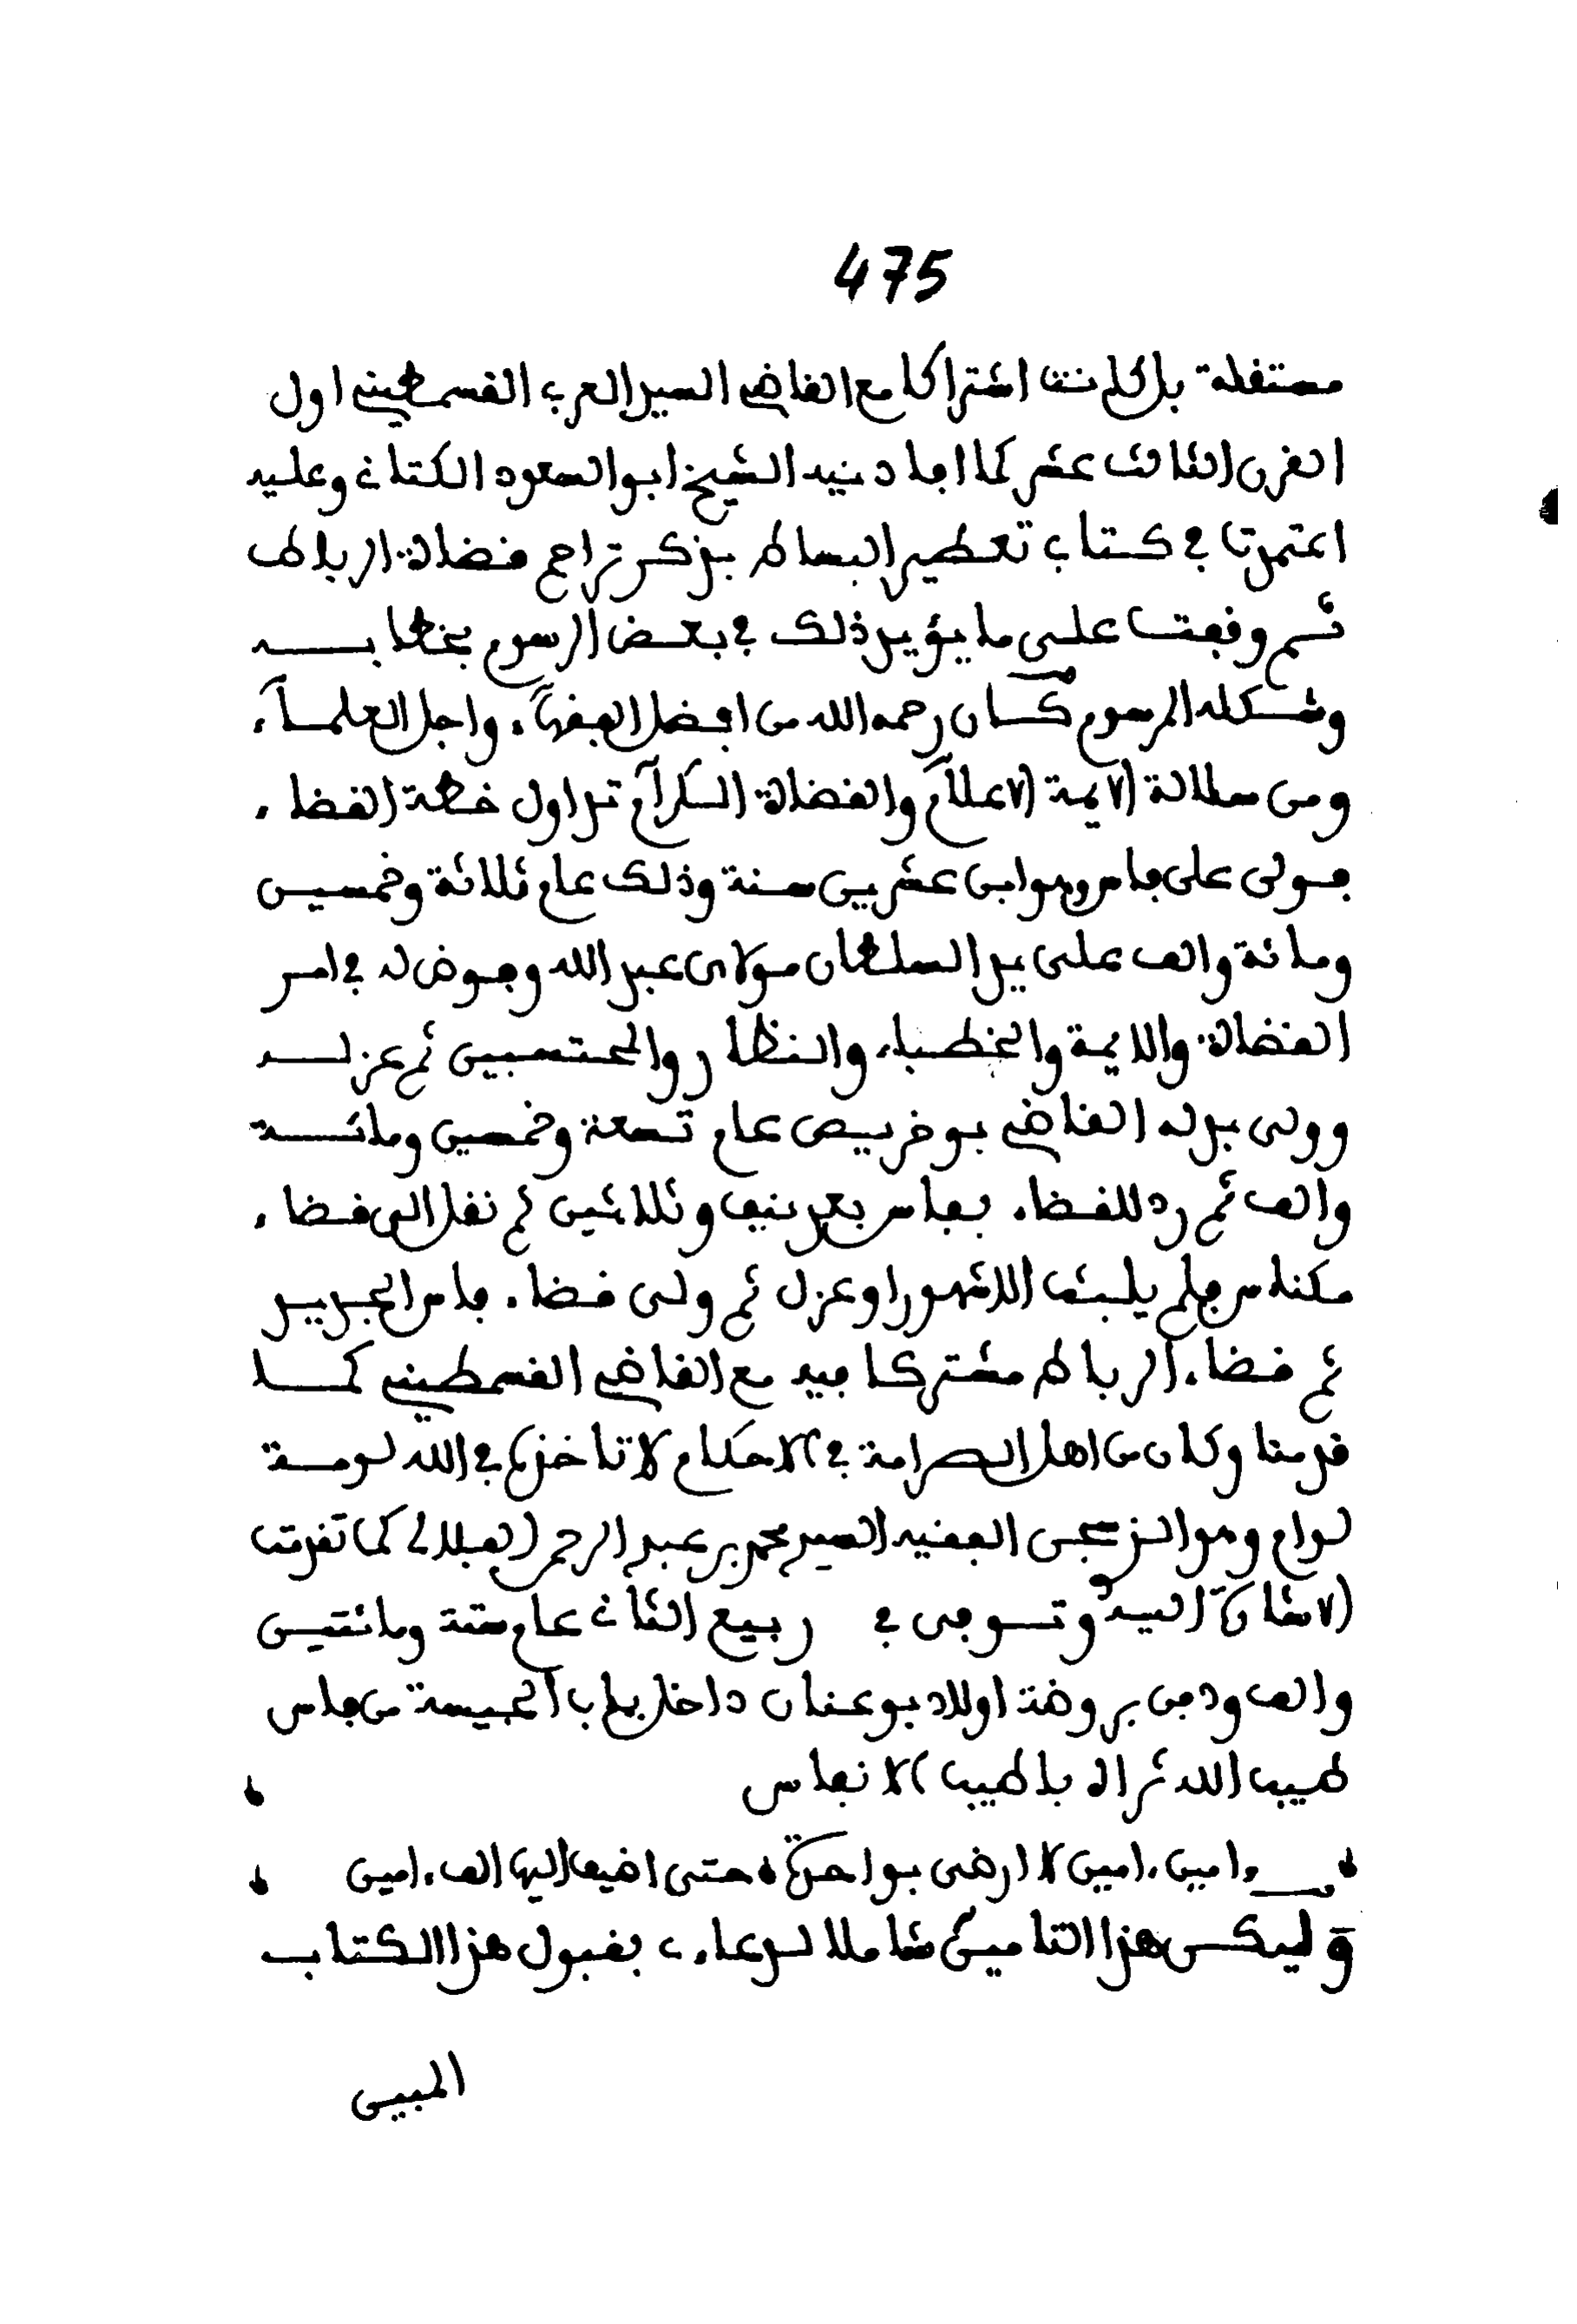 475
مستقلة بل كانت اشتراكا مع القاضي السيد العربي القسمطيني اول
القرن الثالث عشر كما افادنيه الشيخ ابو السعود الكتاني وعليه
اعتمدنا في كتاب تعطير البساط بذكر تراجم قضاة الرباط
ثم وقفت على ما يؤيد ذلك في بعض الرسوم بخطابه
وشكله المرسوم كان رحمه الله من افضل الفقهاء، واجل العلماء،
ومن سلالة الايمة الاعلام والقضاة الكرام تداول خطة القضاء
فولى على فاس وهو ابن عشرين سنة وذلك عام ثلاثة وخمسين
ومائة والف على يد السلطان مولاى عبد الله وفوض له في امر
القضاة والايمة والخطباء والنظار والمحتسبين ثم عزله
وولى بدله القاضي بوخريص عام تسعة وخمسين ومائة
والف ثم رد للقضاء بفاس بعد نيف وثلاثين ثم نقل الى قضاء
مكناس فلم يلبث الا شهورا وعزل ثم ولى قضاء فاس الجديد
ثم قضاء الرباط مشتركا فيه مع القاضي القسمطيني كما
قدمنا وكان من اهل الصرامة في الاحكام لا تاخذه في الله لومة
لوام وهو الذ سجن الفقيه السيد محمد بن عبد الرحمن الفيلالي كما تقدمت
الاشارة اليه وتوفى في ربيع الثاني عام ستة ومائتين
والف ودفن بروضة اولاد بوعنان داخل باب الجيسة من فاس
طيب الله ثراه باطيب الانفاس
امين امين لا ارضى بواحدة حتى اضيف اليها الف امين
وليكن هذا التامين شاملا لدعاءى بقبول هذا الكتاب
المبين